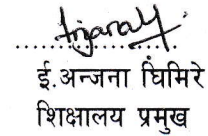 ई.अन्जना घिमिरे
शिक्षालय प्रमुख